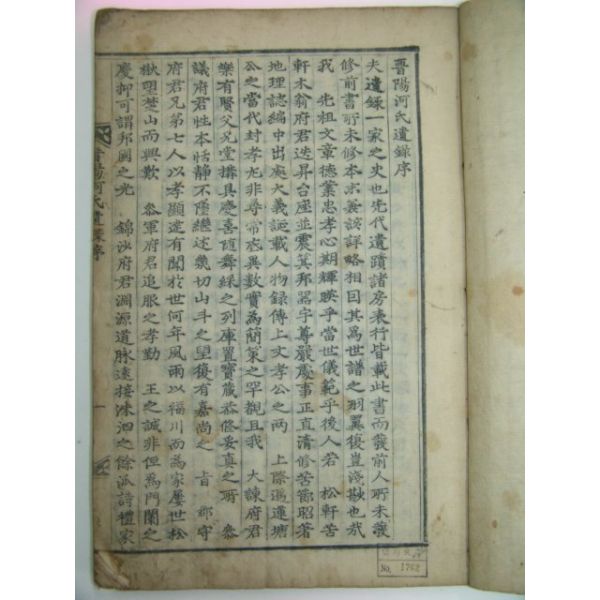 晋陽河氏遺錄序
夫遺錄一家之史也先代遺蹟諸房表行皆載此書而發前人所未發
修前書所未修本宗兼該詳略相因其爲世譜之羽翼復豈淺尠也哉
我 先祖文章德業忠孝心期輝暎乎當世儀範乎後人若 松軒苦
軒木翁府君迭昇台座並震箕邦器宇尊嚴處事正直清修苦節昭著
地理誌編中出處大義誕載人物録傳上文孝公之兩 上際遇蓮塘
公之當代封孝尤非尋常恣異數實爲簡策之罕觀且我 大諫府君
樂有賢父兄堂構具慶喜随舞綵之列庫置寶蔵恭修妥真之所 叅
議府君性本恬靜不墜繼述幾切山斗之望獲有嘉尚之 旨 郡守
府君兄第七人以孝顯達有聞於世何年風雨以福川而爲家屡世松
楸望楚山而興歎 叅軍府君追服之孝勤 王之誠非但爲門闌之
慶抑可謂邦國之光 錦沙府君淵源道脉遠接洙泗之餘派詩禮家
晋陽河氏遺錄序
一
No. 1762